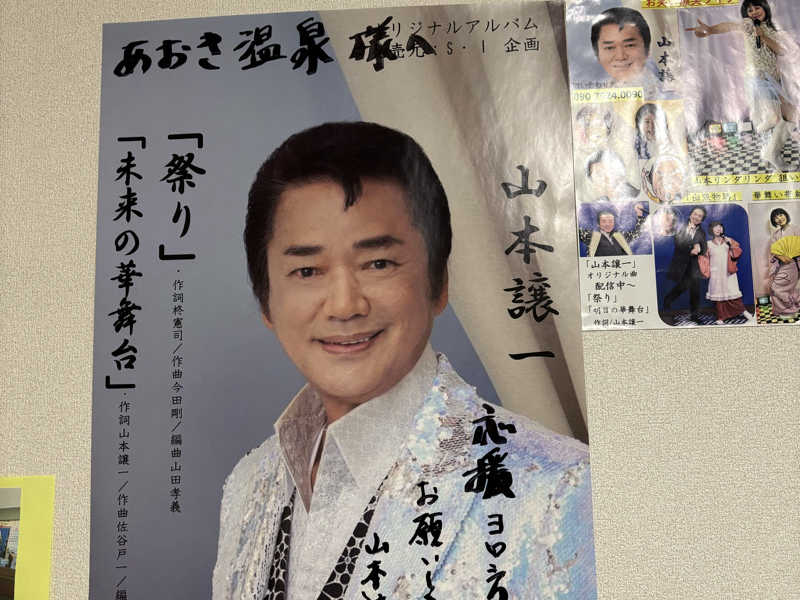 あおき温泉様へ
リジナルアルバム
売元:S・I 企画
山本譲一
「祭り」・作詞柊憲司/作曲今田剛/編曲山田孝義
「未来の華舞台」・作詞山本譲一/作曲佐谷戸一/編
応援ヨロシ
お願いし
山本
山本譲
「山本譲一」
オリジナル曲
配信中〜
「祭り」
「明日の華舞台」
作詞/山本譲一